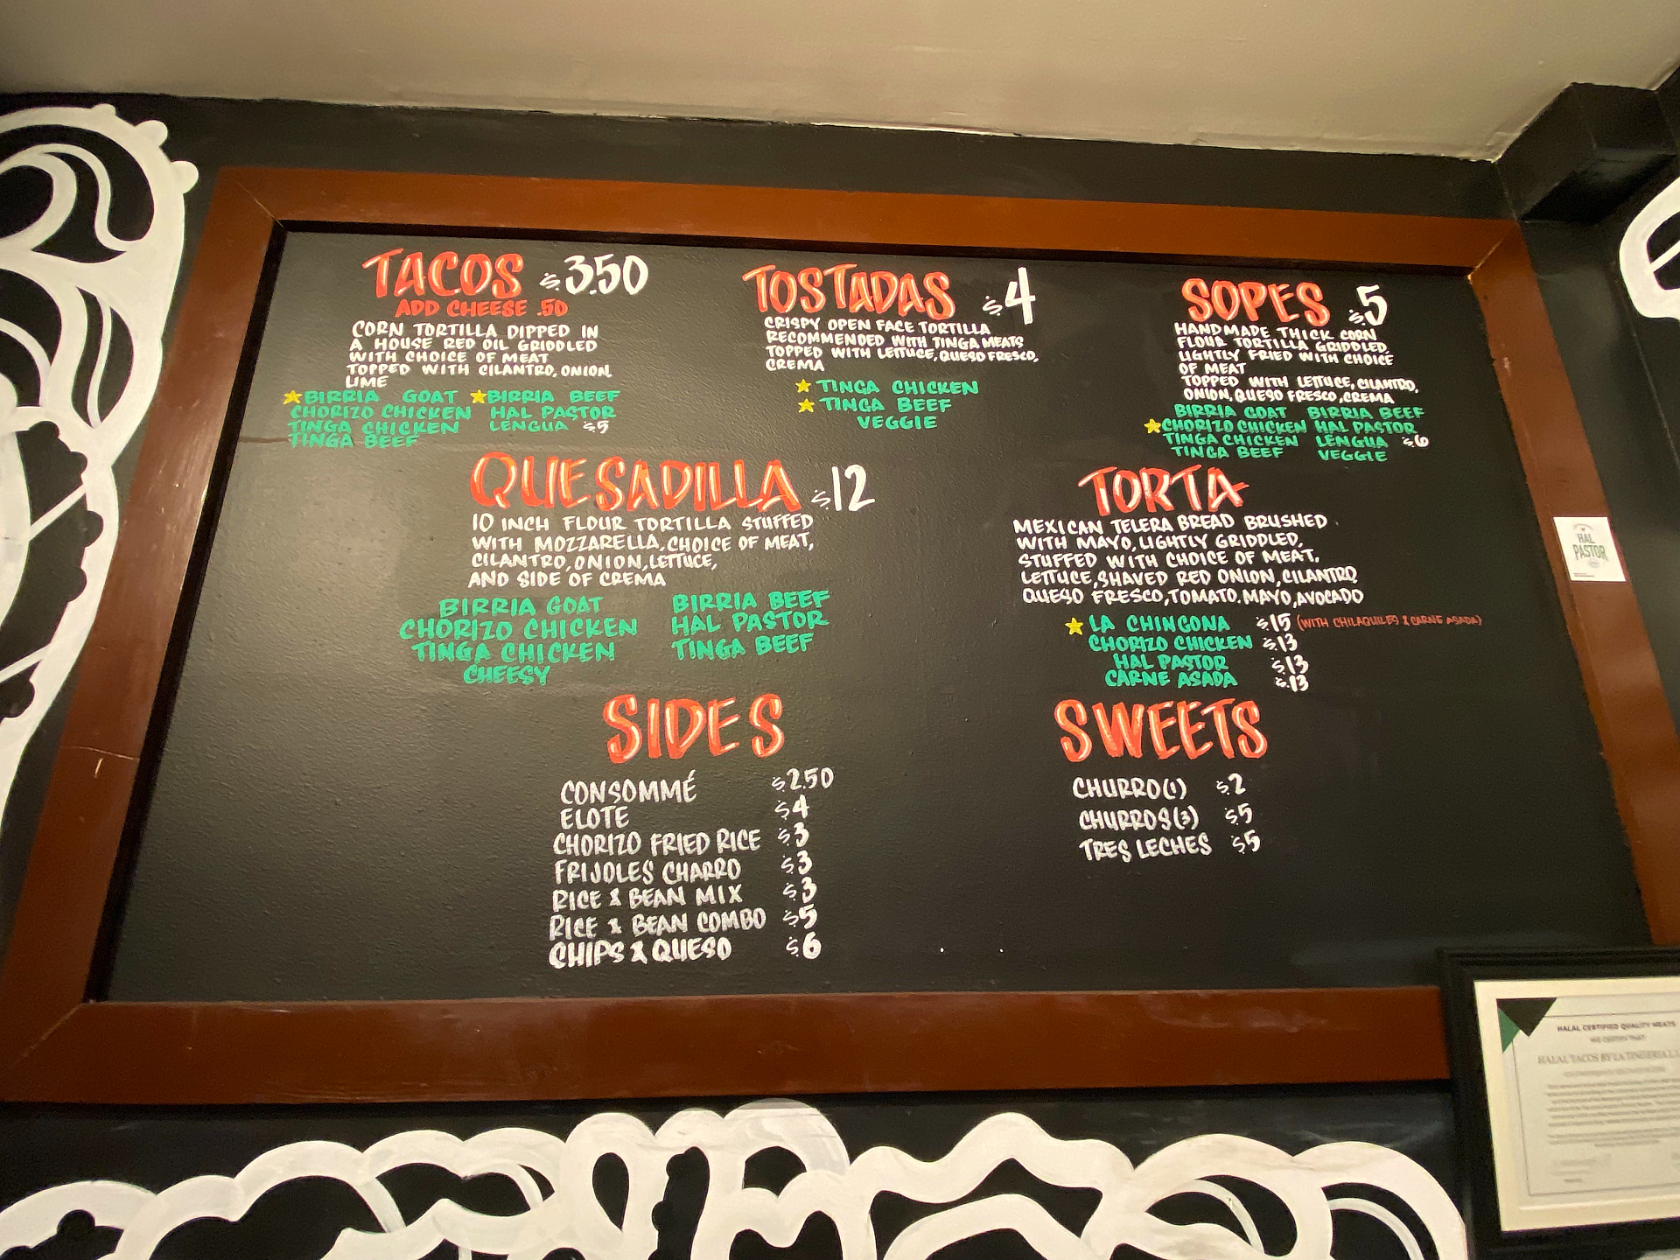 TACOS $3.50
ADD CHEESE .50
CORN TORTILLA DIPPED IN
A HOUSE RED OIL GRIDDLED
WITH CHOICE OF MEAT
TOPPED WITH CILANTRO, ONION,
LIME
BIRRIA GOAT BIRRIA BEEF
CHORIZO CHICKEN HAL PASTOR
TINGA CHICKEN LENGUA $5
TINGA BEEF
TOSTADAS $4
CRISPY OPEN FACE TORTILLA
RECOMMENDED WITH TINGA MEATS
TOPPED WITH LETTUCE, QUESO FRESCO,
CREMA
TINGA CHICKEN
TINGA BEEF
VEGGIE
SOPES $5
HANDMADE THICK CORN
FLOUR TORTILLA GRIDDLED,
LIGHTLY FRIED WITH CHOICE
OF MEAT
TOPPED WITH LETTUCE, CILANTRO,
ONION, QUESO FRESCO, CREMA
BIRRIA GOAT BIRRIA BEEF
CHORIZO CHICKEN HAL PASTOR
TINGA CHICKEN LENGUA $6
TINGA BEEF VEGGIE
QUESADILLA $12
10 INCH FLOUR TORTILLA STUFFED
WITH MOZZARELLA, CHOICE OF MEAT,
CILANTRO, ONION, LETTUCE,
AND SIDE OF CREMA
BIRRIA GOAT BIRRIA BEEF
CHORIZO CHICKEN HAL PASTOR
TINGA CHICKEN TINGA BEEF
CHEESY
TORTA
MEXICAN TELERA BREAD BRUSHED
WITH MAYO, LIGHTLY GRIDDLED,
STUFFED WITH CHOICE OF MEAT,
LETTUCE, SHAVED RED ONION, CILANTRO
QUESO FRESCO, TOMATO. MAYO, AVOCADO
LA CHINGONA $15 (WITH CHILAQUILES & CARNE ASADA)
CHORIZO CHICKEN $13
HAL PASTOR $13
CARNE ASADA $13
SIDES
CONSOMMÉ $2.50
ELOTE $4
CHORIZO FRIED RICE $3
FRIJOLES CHARRO $3
RICE & BEAN MIX $3
RICE & BEAN COMBO $5
CHIPS & QUESO $6
SWEETS
CHURRO(1) $2
CHURROS(3) $5
TRES LECHES $5
HAL
PASTOR
HALAL CERTIFIED QUALITY MEATS
WE CERTIFY THAT
HALAL TACOS BY LA TINGERIA